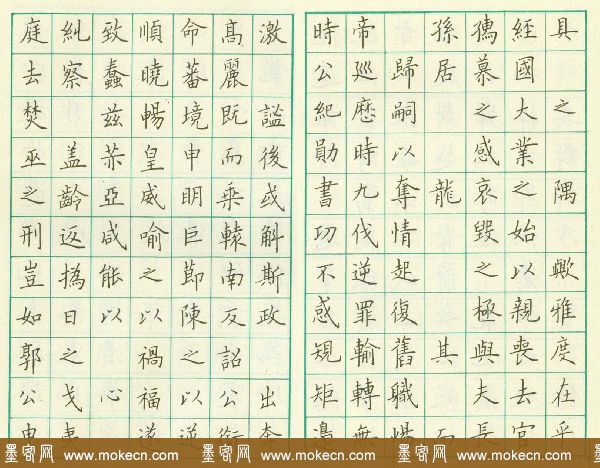 具之隅歟雅度在
經國大業之始以親喪去官
孺慕之感哀毀之極與夫長
孫居龍其
歸嗣以奪情起復舊職
帝巡歷時九伐逆罪輸轉無
時公紀勛書功不惑規矩邉
激謐後斛斯政出奔
髙麗既而乘轅南反詔公
命蕃境申明巨節陳之以逆
順曉暢皇威喻之以禍福遂
致蠢兹亞咸能以心
糾察蓋齡返撝日之戈
庭去焚巫之刑豈如郭公
墨客网 www.mokecn.com 墨客网 www.mokecn.com 墨客网 www.mokecn.com